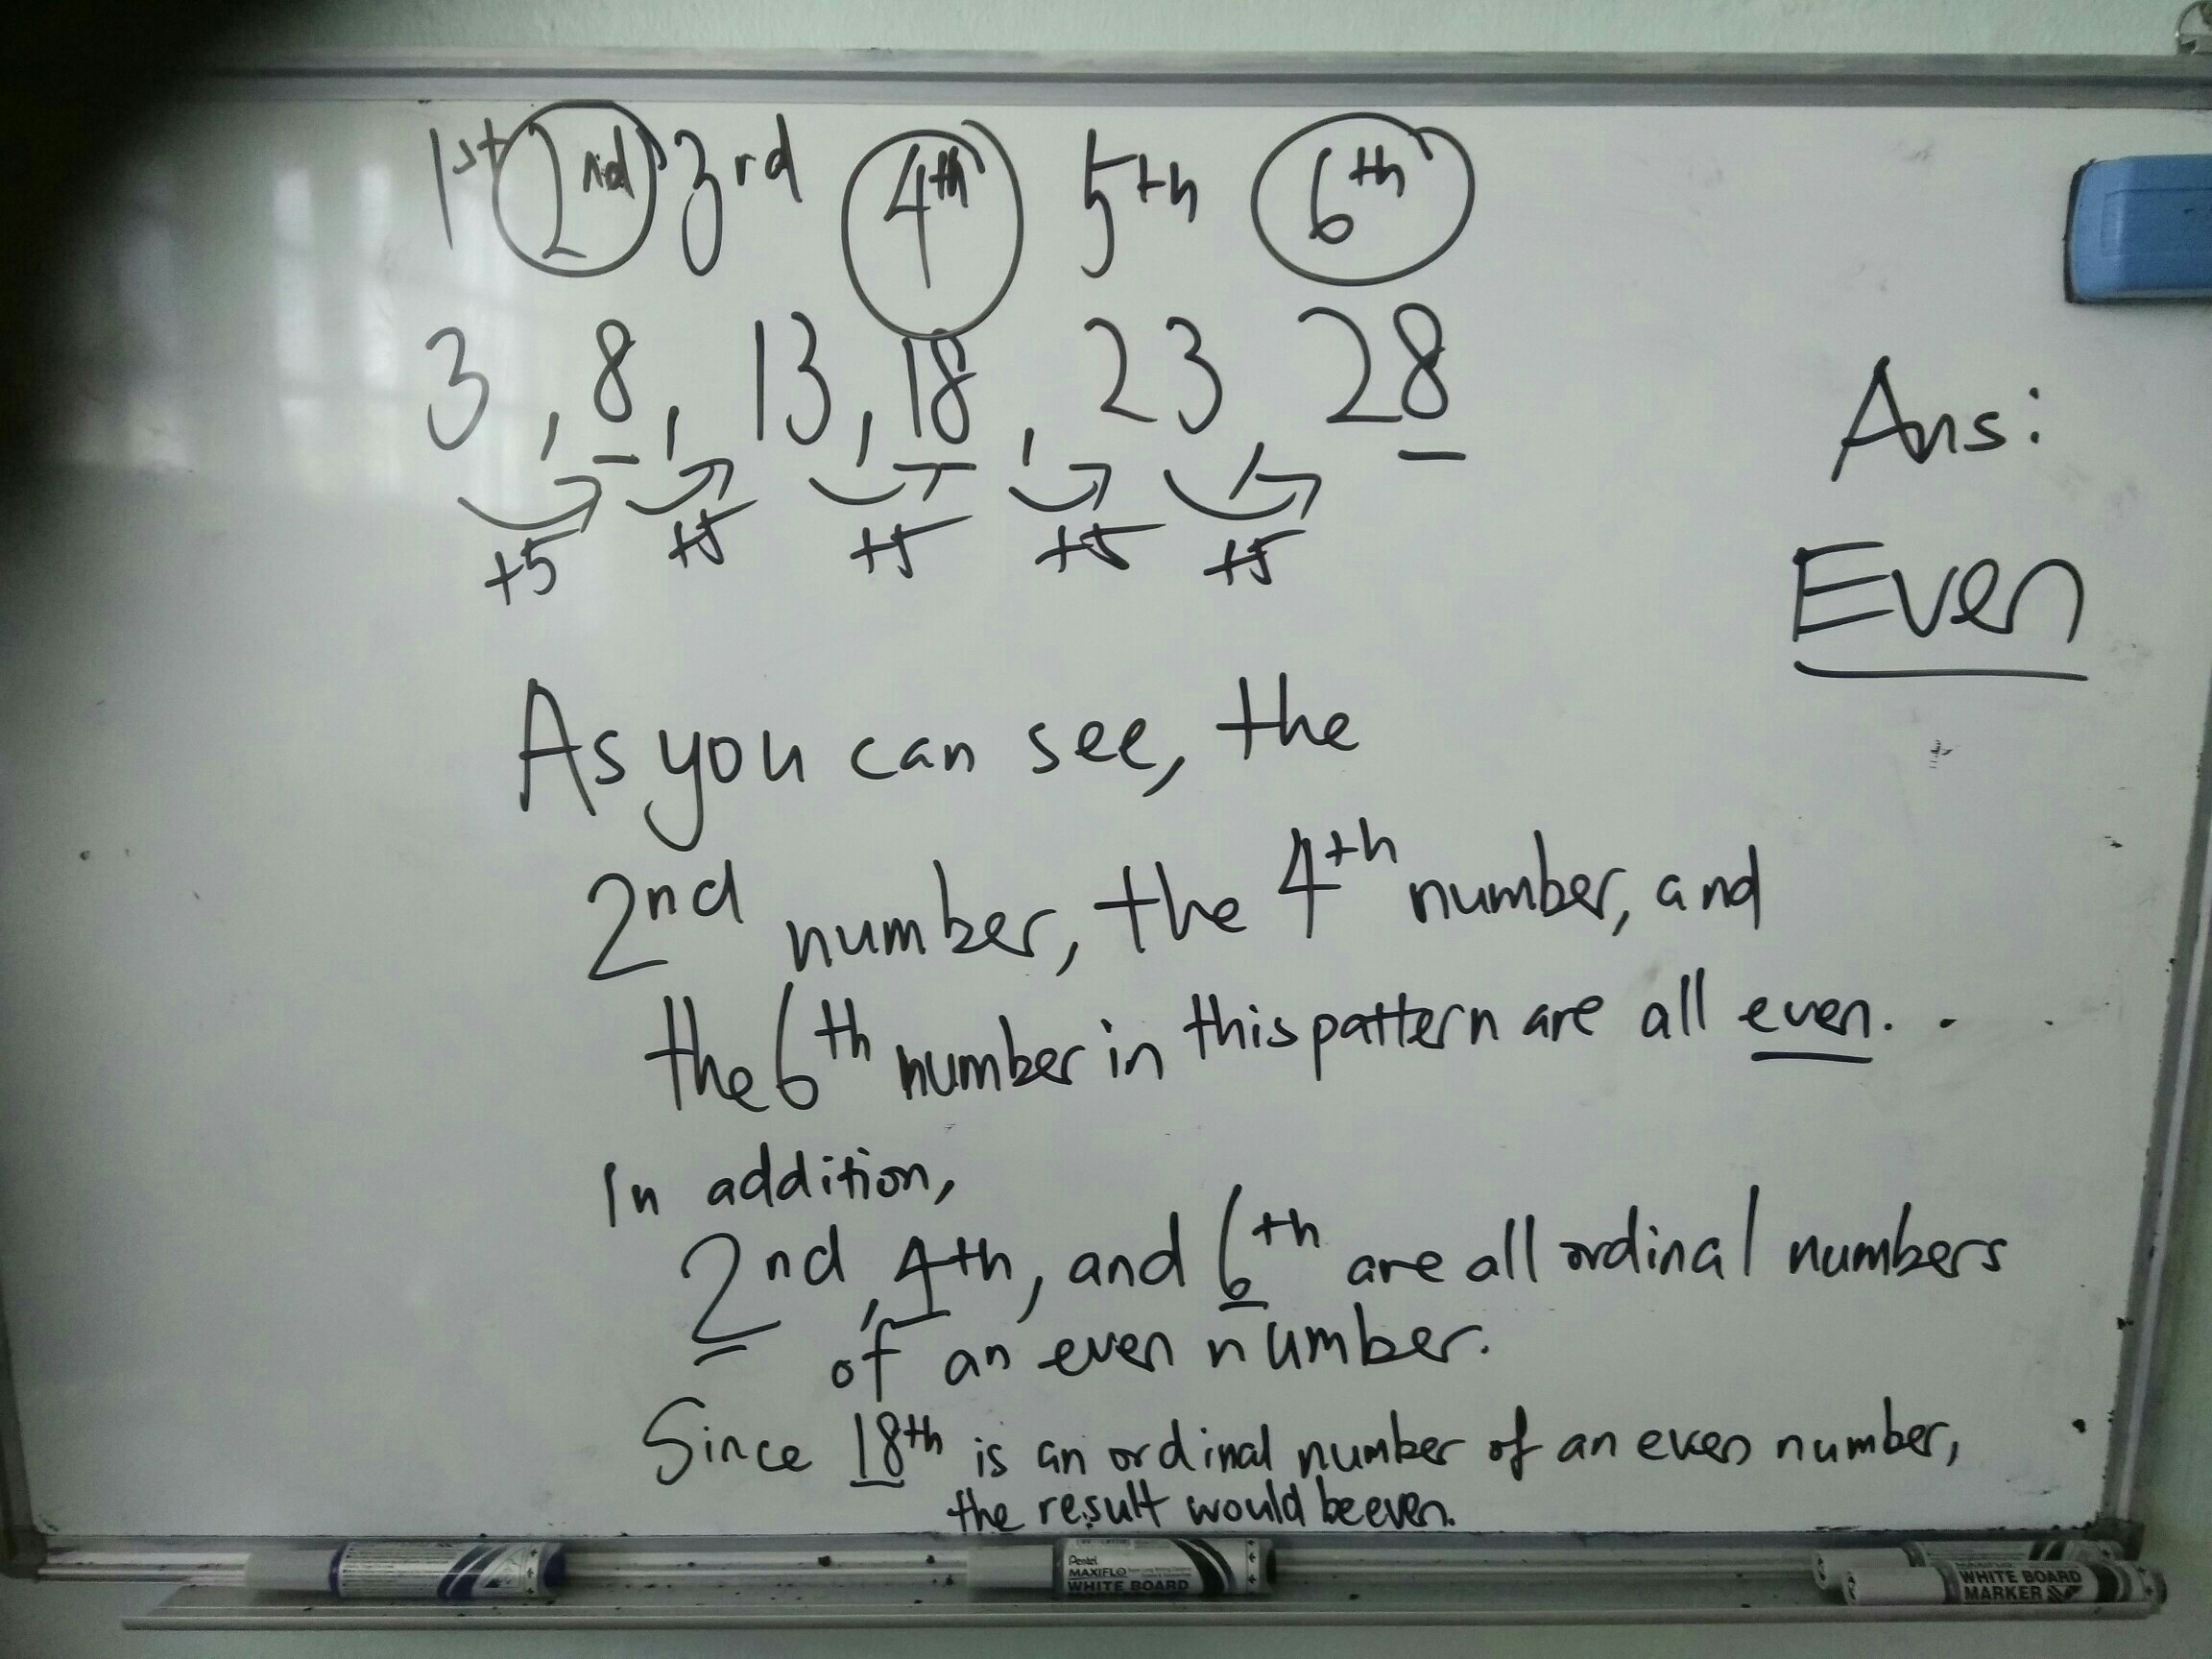 1st 2nd 3rd 4th 5th 6th
3, 8, 13, 18, 23, 28
+5 +5 +5 +5 +5
Ans:
Even
As you can see, the
2nd number, the 4th number, and
the 6th number in this pattern are all even.
In addition,
2nd, 4th, and 6th are all ordinal numbers
of an even number.
Since 18th is an ordinal number of an even number,
the result would be even.
Pentel
MAXIFLO
WHITE BOARD
WHITE BOARD
MARKER